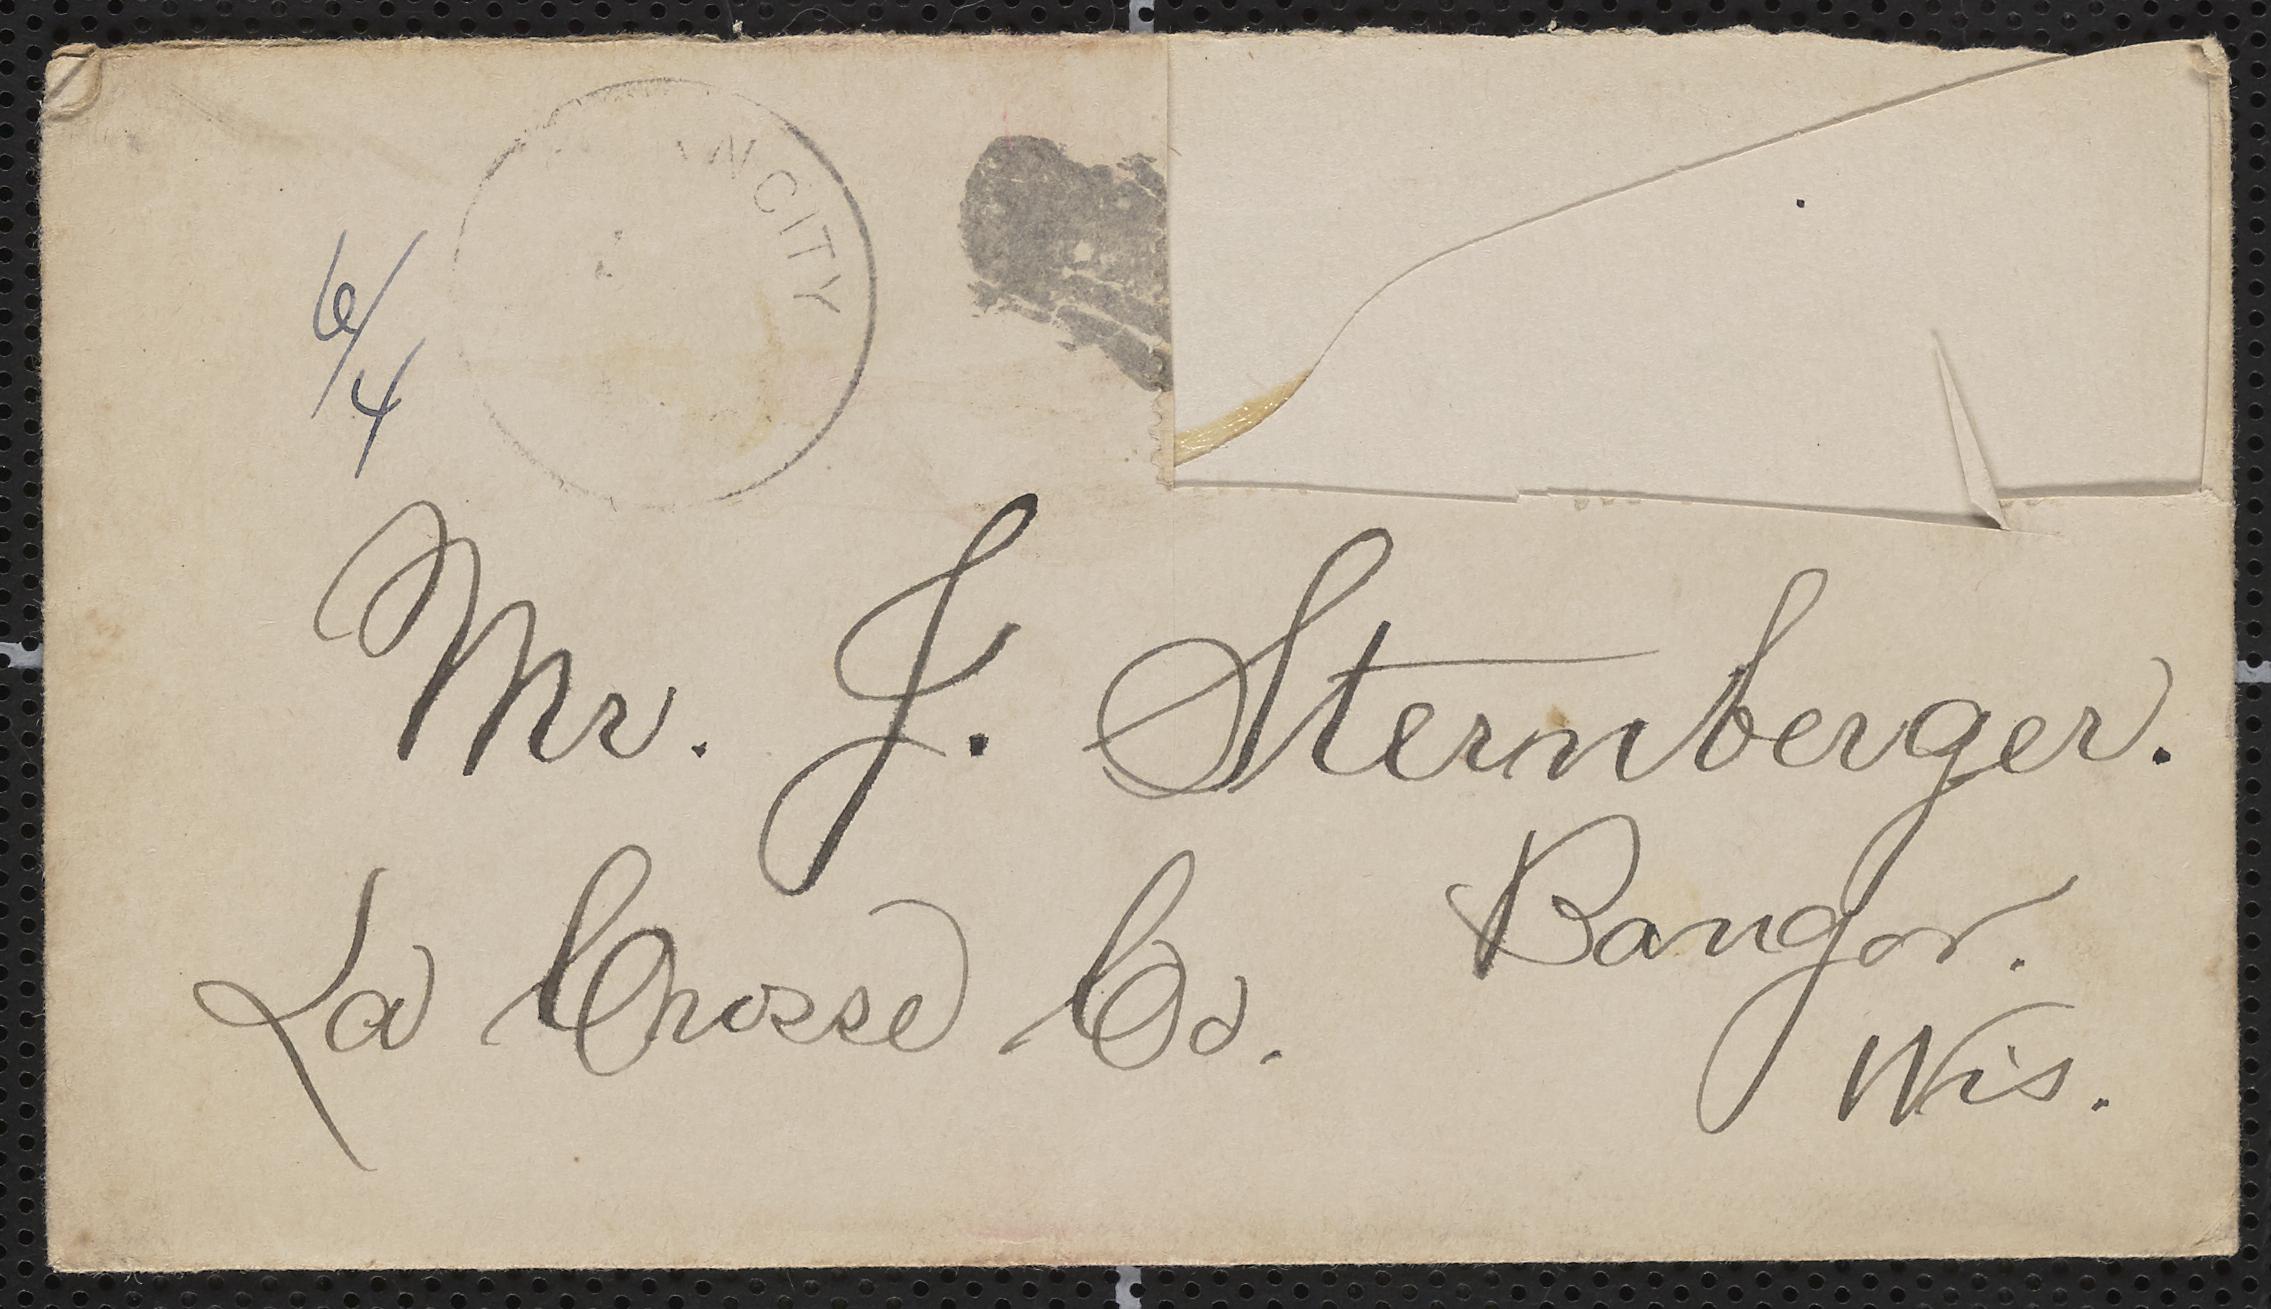 CITY
6/4
Mr. J. Sternberger.
Bangor.
La Crosse Co.
Wis.